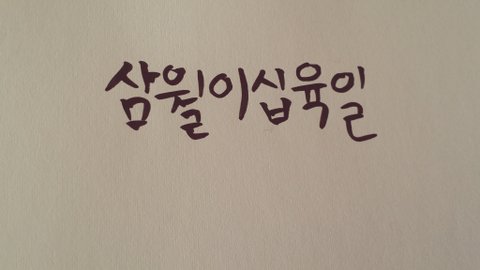 삼월이십육일